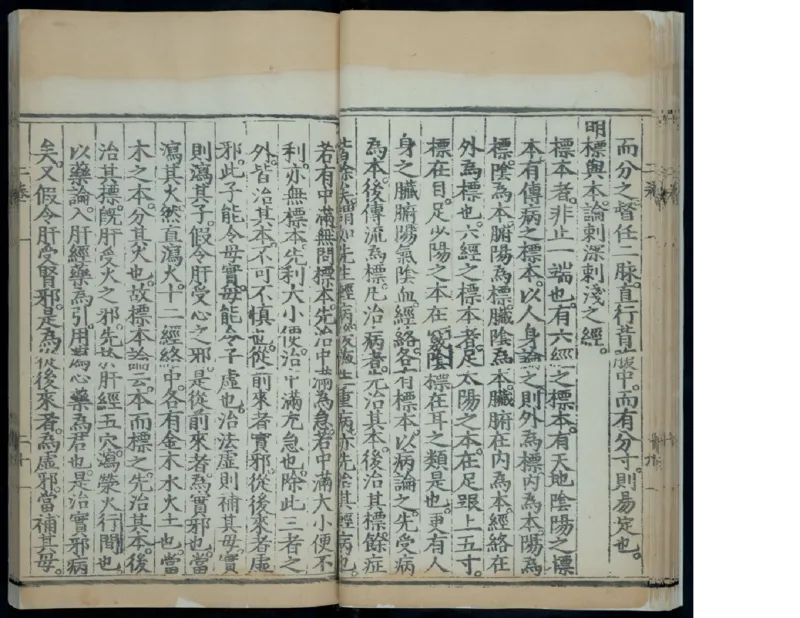 而分之。督任二脉。直行背腹中。而有分寸。則易定也。
明標與本。論刺深刺淺之經。
標本者。非止一端也。有六經之標本。有天地陰陽之標
本。有傳病之標本。以人身論之。則外為標。內為本。陽為
標。陰為本。腑陽為標。臟陰為本。臟腑在內為本。經絡在
外為標也。六經之標本者。足太陽之本。在足跟上五寸。
標在目。足少陽之本在竅陰。標在耳之類是也。更有人
身之臟腑。陽氣陰血。經絡。各有標本。以病論之。先受病
為本。後傳流為標。凡治病者。先治其本。後治其標。餘症
皆除矣。謂如先生輕病。後滋生重病。亦先治其輕病也。
若有中滿。無問標本。先治中滿為急。若中滿大小便不
利。亦無標本。先利大小便。治中滿尤急也。除此三者之
外。皆治其本。不可不慎也。從前來者實邪。從後來者虛
邪。此子能令母實。母能令子虛也。治法虛則補其母。實
則瀉其子。假令肝受心之邪。是從前來者。為實邪也。當
瀉其火。然直瀉火。十二經絡中。各有金木水火土也。當
木之本。分其火也。故標本論云。本而標之。先治其本。後
治其標。既肝受火之邪。先於肝經五穴。瀉滎火行間也。
以藥論。入肝經藥為引。用瀉心藥為君也。是治實邪病
矣。又假令肝受腎邪。是為從後來者。為虛邪。當補其母。
二卷